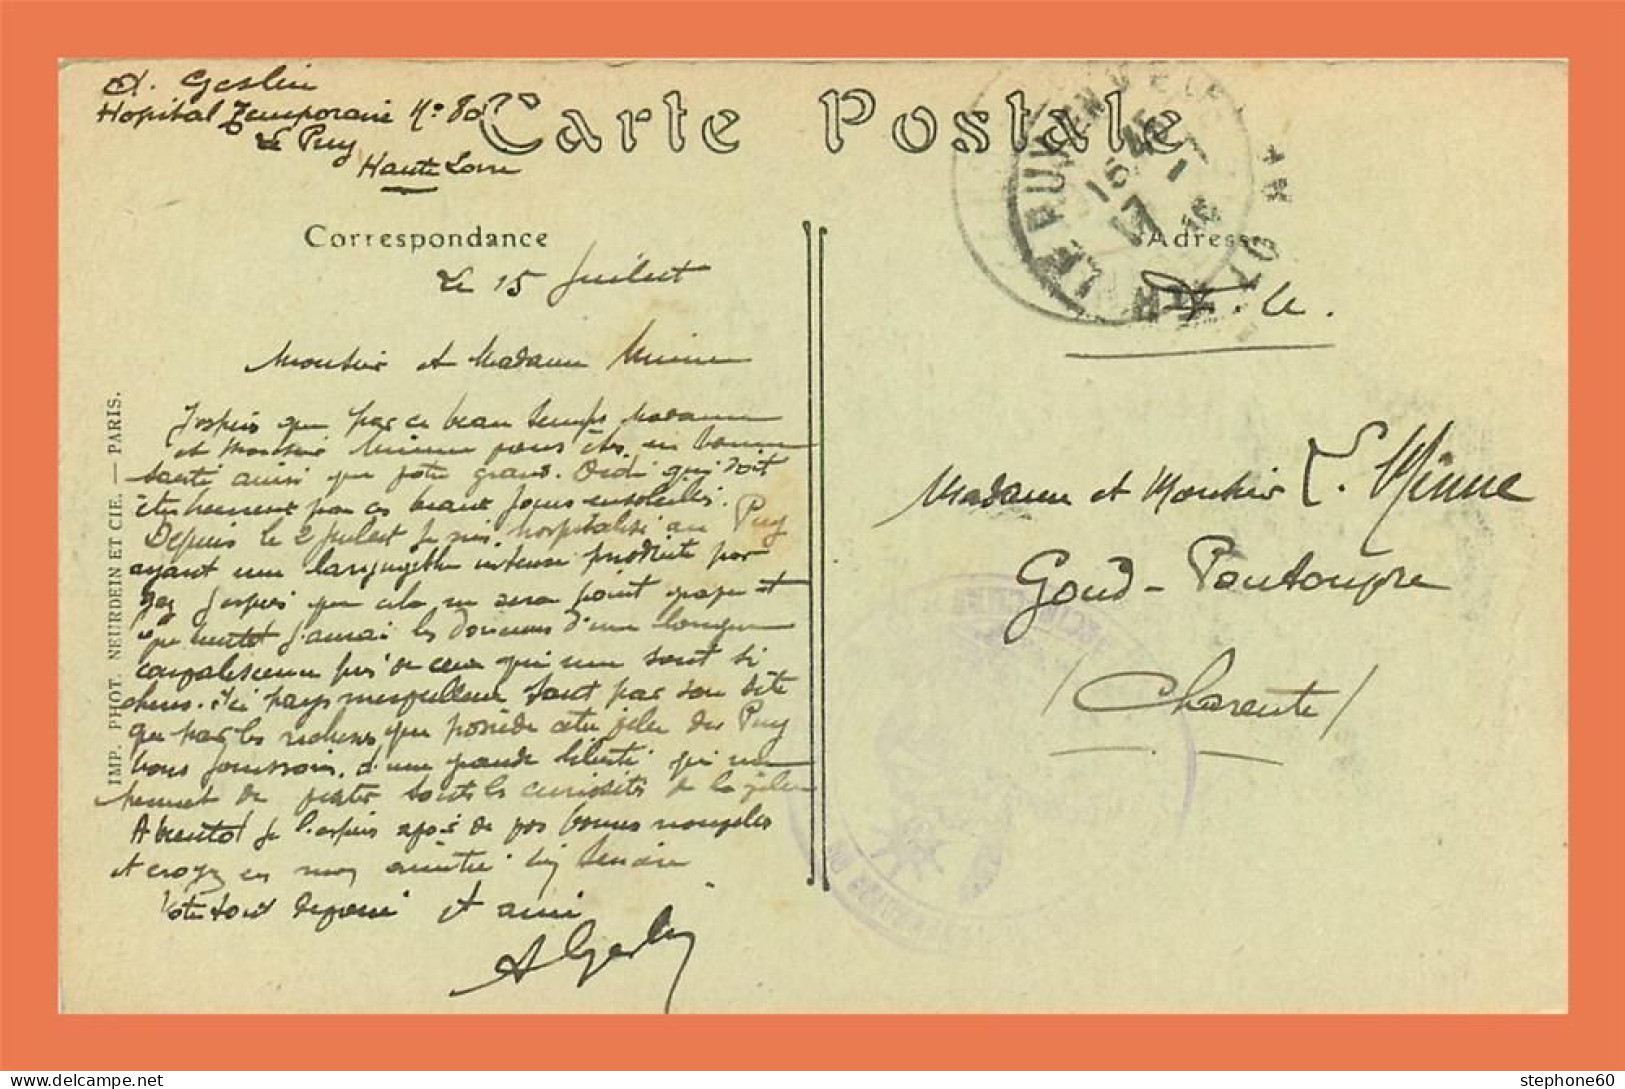 A. Geslin
Hopital Temporaire N° 80
Le Puy
Haute Loire
Carte Postale
Correspondance
Adresse
LE PUY-EN-VELAY
16 45
17 - 7
16
HTE LOIRE
F. M.
Le 15 Juillet
Monsieur et Madame Minne
J'espère que par ce beau temps Madame
et Monsieur Minne vous êtes en bonne
santé ainsi que votre grand. Ordi qui doit
être heureux par ces beaux jours ensoleillés.
Depuis le 2 Juillet je suis hospitalisé au Puy
ayant une laryngite intense produite par
gaz J'espère que cela ne sera point grave et
que bientôt j'aurai les douceurs d'une longue
convalescence près de ceux qui me sont si
chers. Ici pays merveilleux tant par son site
que par les richesses que possède cette ville du Puy
nous jouissons d'une grande liberté qui me
permet de visiter toutes les curiosités de la ville
A bientôt je l'espère avoir de vos bonnes nouvelles
et croyez en mon amitié bien sincère
Votre tout dévoué et ami
A Geslin
Madame et Monsieur L. Minne
Gond-Pontouvre
(Charente)
IMP. PHOT. NEURDEIN ET CIE. — PARIS.
stephone60